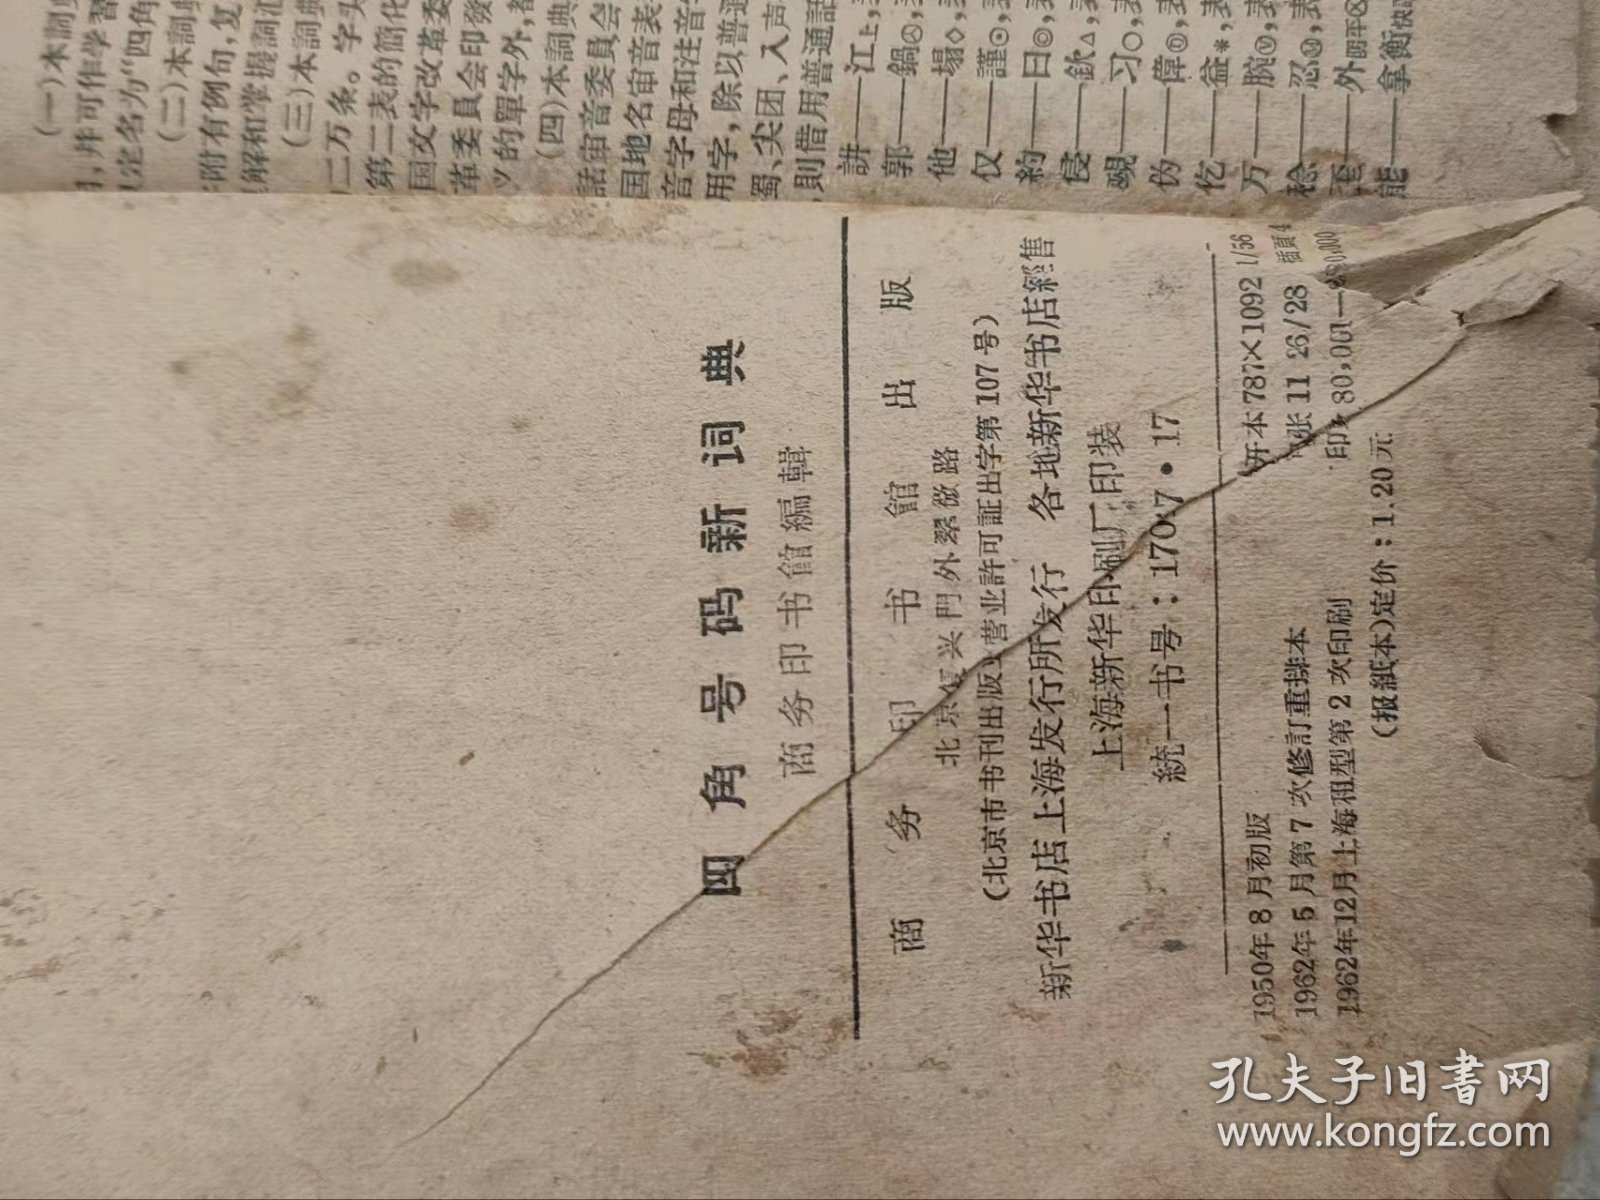 (一)本詞典
,幷可作学習
定名为“四角
(二)本詞典
附有例句,复
解和掌握詞汇
(三)本詞典
二万条。字头
第二表的简化
国文字改革委
革委員会印發
义的單字外,都
(四)本詞典
話审音委員会
国地名审音表
音字母和注音
用字,除以普通
蜀、尖团、入声
,則借用普通話
講——江上,
郭——鍋
他——塌◇,
仅——謹⊙,
約——曰◎,表
侵——欽△,表
觋——习○,表
伪——偉
仡——益*,表
万——腕
稔——忍
——外
能——拿
四角号码新词典
商务印书館編輯
商务印书館出版
北京复兴門外翠微路
(北京市书刊出版业营业許可証出字第107号)
新华书店上海发行所发行 各地新华书店經售
上海新华印刷厂印装
統一书号:17017·17
1950年8月初版 开本787×1092 1/56
1962年5月第7次修訂重排本 印张11 26/28 插頁4
1962年12月上海租型第2次印刷 印数80,001—
(报紙本)定价:1.20元
孔夫子旧書网
www.kongfz.com